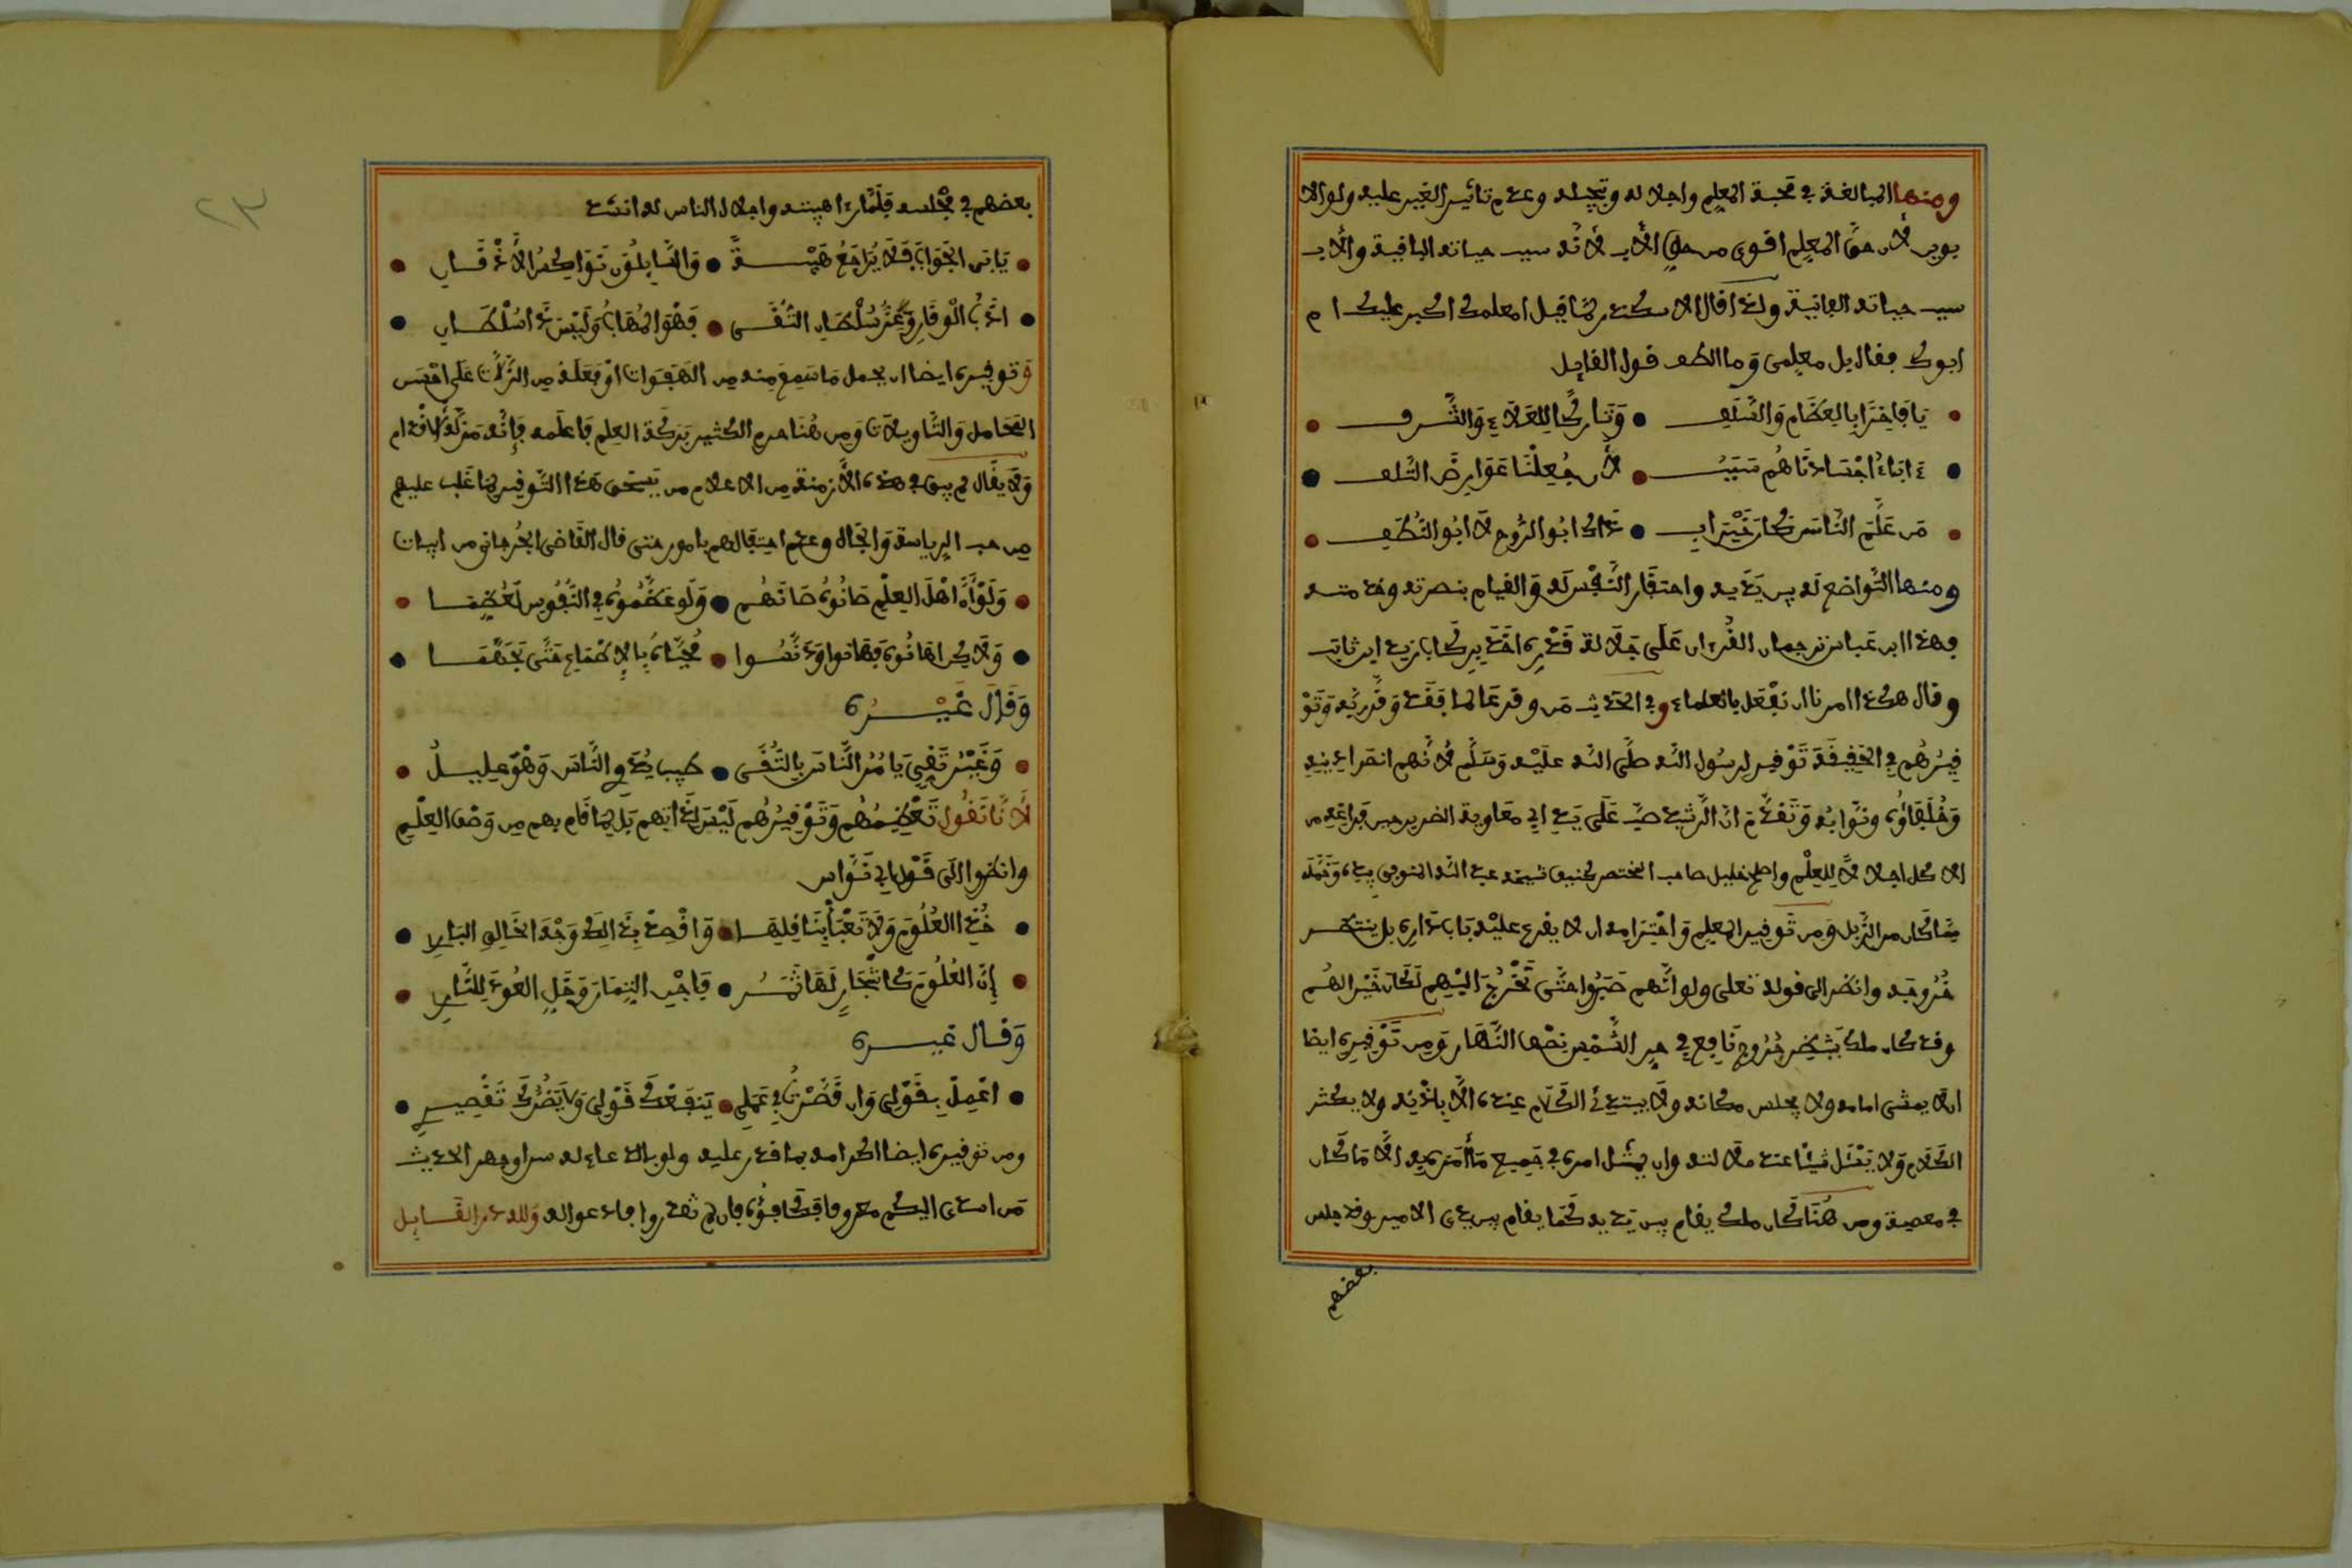 ومنها المبالغة في محبة المعلم واجلاله وتبجيله وعدم تاثير الغير عليه ولو الا
بوين لأن حقّ المعلم اقوى من حق الأب لأنّه سبب حياته الباقية والأب
سبب حياته الفانية ولذا قال الاسكندر لمّا قيل امعلمك اكبر عليك ام
ابوك فقال بل معلمى وما الطف قول القايل
يَا فَاخِرًا بالعِظَام وَالسَّلَفِ • وَتَارِكًا لِلعَلَاءِ وَالشَّرف
ءاباءُ اجْسَادنَا هُم سَبَبُ • لأن جُعِلْنَا عَوَارِضَ التَّلف
مَن عَلَّم النَّاسَ كَانَ خَيْرَ اب • ذَاك ابُو الرُّوح لَا ابُو النُّطَفِ
ومنها التّواضع له بين يَدَيه واحتقَار النَّفْس لَه وَالقيام بنصرته وخدمته
فهذا ابن عَباس ترجمان القُرءان عَلَى جَلَالة قَدْره اخَذَ بِركَاب زيد ابن ثابت
وقال هكذا امرنا ان نَفْعَل بالعلماء وفي الحَديث مَن وقر عَالما فَقَد وَقَّر رَبَّه وَتَوْ
قِيرُهُم في الحَقِيقَة تَوْقير لِرسُول اللَّه صلَّى اللَّه عليْه وَسَلَّم لأنّهم امَناء دينه
وَخُلَفَاؤُه ونوّابُه وَتَقدَّمَ انّ الرَّشيد صبَّ عَلَى يَدِ ابي مَعَاوية الضرير حين فراغه من
الاكل اجلالًا لِلعِلْم واصلح خليل صاحب المختصر كنيف شيخه عبد اللَّه المنوفى بيده وَحَمَلَ
مَا كَان من الزّبل وَمن تَوقير المعلم وَاحْتِرَامه ان لا يقرع عليْه بَاب دَاره بل ينتظر
خُرُوجَه وانظر الى قوله تعلى ولو انَّهم صَبَرُوا حتَّى تَخْرُجَ الَيْهِم لَكَان خَيْرا لَهُم
وقد كان ملك يَنتظِر خُرُوج نَافِع في حر الشَّمْس نِصْف النَّهَار وَمِن تَوْقيره ايضا
ان لا يمشى امامه ولا يجلس مكانه وَلَا يبتدئ الكَلَام عِنده الّا باذْنِه ولا يكثر
الكَلَام وَلا يَسْئَل شَيْئًا عند ملالته وان يمتثل امره في جَميع مَا أمَر به الّا مَا كَان
في معصية ومن هُنَا كَان ملك يقام بين يَدَيه كَمَا يقام بين يدى الامير وقد جلس
بعضهم
بعضهم في مجْلسه فَلَمَّا رءا هيبته واجلال الناس له انشد
يَابَى الجَوَابَ فَلَا يُرَاجَعُ هَيْبَةً • وَالسَّايلُون نَوَاكِسُ الأَذْقَان
ادَبُ الْوقَار وَعِزّ سُلْطَان التُّقَى • فَهْوَ المُهَابُ وَلَيْسَ ذَا سُلْطَان
وَتوقيره ايضا ان يحمل مَا سَمِعَ منه من الهَفَوات اوْ فعَلَهُ مِن الزَّلَّات عَلَى احْسَن
المَحَامل وَالتَّاويلَات وَمِن هُنَا حرم الكثير بَرَكَة العِلم فَاعلَمه فَإِنَّه مَزَلَّة الأقْدام
وَلَا يقَال لم يبق في هذه الأزمنة من الاعلام من يَسْتحق هَذا التّوقير لمَا غَلَب عليهم
مِن حب الرياسة وَالجَاه وعدم احتفالهم بامور حتى قال القَاضى الجُرجانى من ابيات
وَلَوْأَنَّ اهْلَ العِلْم صَانُوهُ صَانَهُم • وَلَو عَظَّمُوهُ في النُّفُوس لَعُظِّمَا
وَلَاكن اهَانُوه فَهَانوا وَدَنَّسُوا • مُحَيَّاهُ بِالاطْمَاعِ حَتَّى تَجَهَّمَا
وَقَالَ غَيْرُه
وَغَيْرُ تَقِىٍّ يَامُرُ النَّاسَ بِالتُّقَى • طَبِيب يُدَاوِي النَّاسَ وَهْوَ عَلِيلُ
لأنّا نَقُول تَعْظِيمُهُم وَتَوْقِيرُهُم لَيْسَ لِذَاتهم بَل لِمَا قَام بِهِم مِن وَصْف العِلْمِ
وانظروا الَى قَوْل ابي نُوَاس
خُذِ العُلُومَ وَلَا تَعْبَأْ بِنَاقِلِهَا • وَاقْصِدْ بِذَالِك وَجْهَ الخَالِقِ البَارِي
إِنَّ العُلُومَ كَاشْجَارٍ لَهَا ثَمَرُ • فَاجْنِ الثِمَارَ وَخَلِ العُودَ لِلنَّار
وَقال غيره
اعْمِلْ بِقَوْلِي وَان قَصَّرْتُ فِي عَمَلِي • يَنفَعْكَ قَوْلى وَلَا يَضْرُرْكَ تَقْصِيرِي
ومن توقيره ايضا اكرامه بما قدر عليه ولو بالدعاء له سرا وجهر الحديث
مَن اسدى اليكم معروفا فكافئوه فان لم تقدروا فادعوا له وَلله در القَايل
٢٣